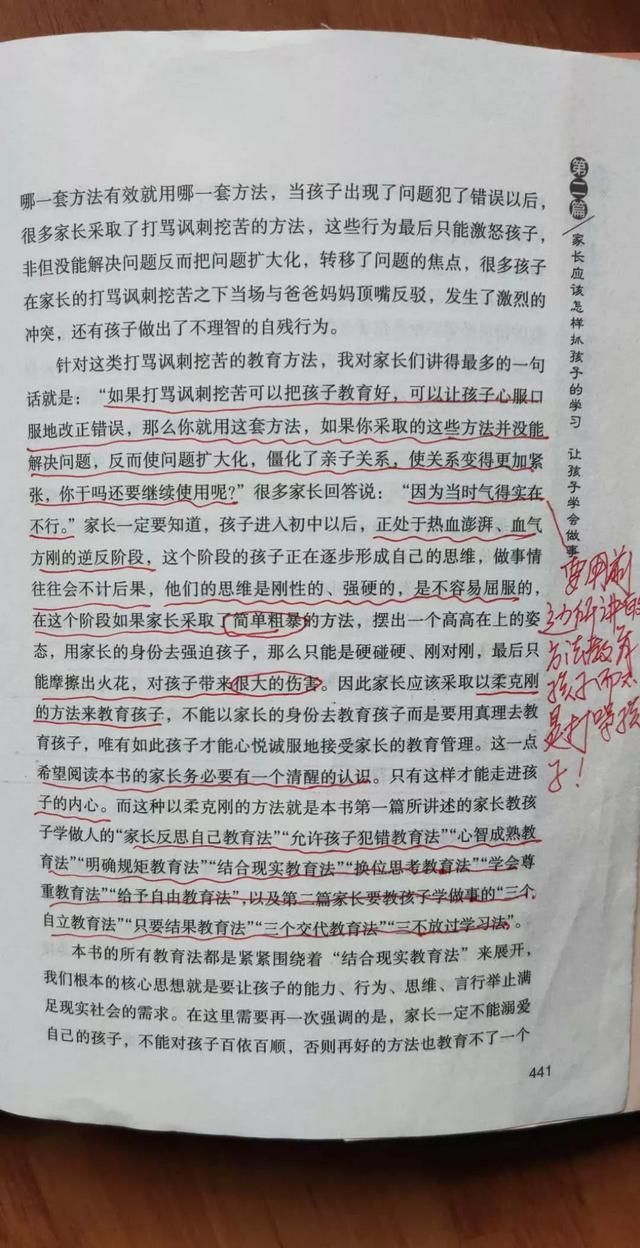 哪一套方法有效就用哪一套方法，当孩子出现了问题犯了错误以后，
很多家长采取了打骂讽刺挖苦的方法，这些行为最后只能激怒孩子，
非但没能解决问题反而把问题扩大化，转移了问题的焦点，很多孩子
在家长的打骂讽刺挖苦之下当场与爸爸妈妈顶嘴反驳，发生了激烈的
冲突，还有孩子做出了不理智的自残行为。
针对这类打骂讽刺挖苦的教育方法，我对家长们讲得最多的一句
话就是：“如果打骂讽刺挖苦可以把孩子教育好，可以让孩子心服口
服地改正错误，那么你就用这套方法，如果你采取的这些方法并没能
解决问题，反而使问题扩大化，僵化了亲子关系，使关系变得更加紧
张，你干吗还要继续使用呢？”很多家长回答说：“因为当时气得实在
不行。”家长一定要知道，孩子进入初中以后，正处于热血澎湃、血气
方刚的逆反阶段，这个阶段的孩子正在逐步形成自己的思维，做事情
往往会不计后果，他们的思维是刚性的、强硬的，是不容易屈服的，
在这个阶段如果家长采取了简单粗暴的方法，摆出一个高高在上的姿
态，用家长的身份去强迫孩子，那么只能是硬碰硬、刚对刚，最后只
能摩擦出火花，对孩子带来很大的伤害。因此家长应该采取以柔克刚
的方法来教育孩子，不能以家长的身份去教育孩子而是要用真理去教
育孩子，唯有如此孩子才能心悦诚服地接受家长的教育管理。这一点
希望阅读本书的家长务必要有一个清醒的认识。只有这样才能走进孩
子的内心。而这种以柔克刚的方法就是本书第一篇所讲述的家长教孩
子学做人的“家长反思自己教育法”“允许孩子犯错教育法”“心智成熟教
育法”“明确规矩教育法”“结合现实教育法”“换位思考教育法”“学会尊
重教育法”“给予自由教育法”，以及第二篇家长要教孩子学做事的“三个
自立教育法”“只要结果教育法”“三个交代教育法”“三不放过学习法”。
本书的所有教育法都是紧紧围绕着“结合现实教育法”来展开，
我们根本的核心思想就是要让孩子的能力、行为、思维、言行举止满
足现实社会的需求。在这里需要再一次强调的是，家长一定不能溺爱
自己的孩子，不能对孩子百依百顺，否则再好的方法也教育不了一个
441
第二篇
家长应该怎样抓孩子的学习 让孩子学会做事
要用前
边所讲的
方法教育
孩子而不
是打骂孩
子！